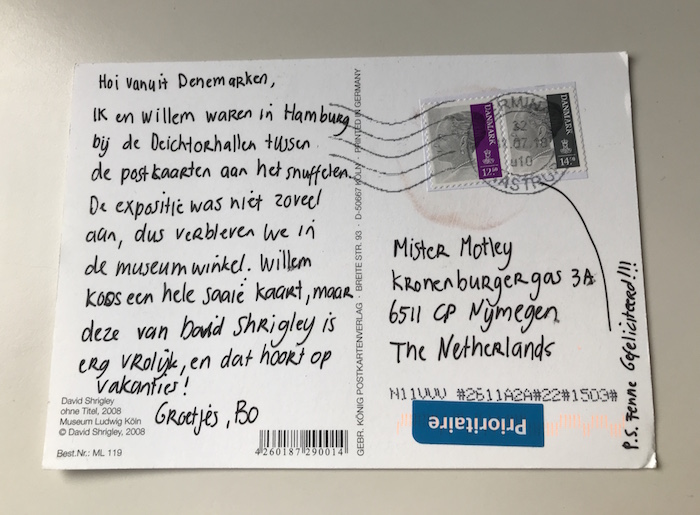 Hoi vanuit Denemarken,
Ik en Willem waren in Hamburg
bij de Deichtorhallen tussen
de postkaarten aan het snuffelen.
De expositie was niet zoveel
aan, dus verbleven we in
de museumwinkel. Willem
koos een hele saaie kaart, maar
deze van David Shrigley is
erg vrolijk, en dat hoort op
vakanties!
Groetjes, Bo
David Shrigley
ohne Titel, 2008
Museum Ludwig Köln
© David Shrigley, 2008
Best.Nr.: ML 119
4260187290014
GEBR. KÖNIG POSTKARTENVERLAG · BREITE STR. 93 · D-50667 KÖLN · PRINTED IN GERMANY
DANMARK
DANMARK
Mister Motley
Kronenburgergas 3A
6511 CP Nijmegen
The Netherlands
N11VVV #2611A2A#22#1503#
Prioritaire
P.S. Fenne Gefeliciteerd!!!